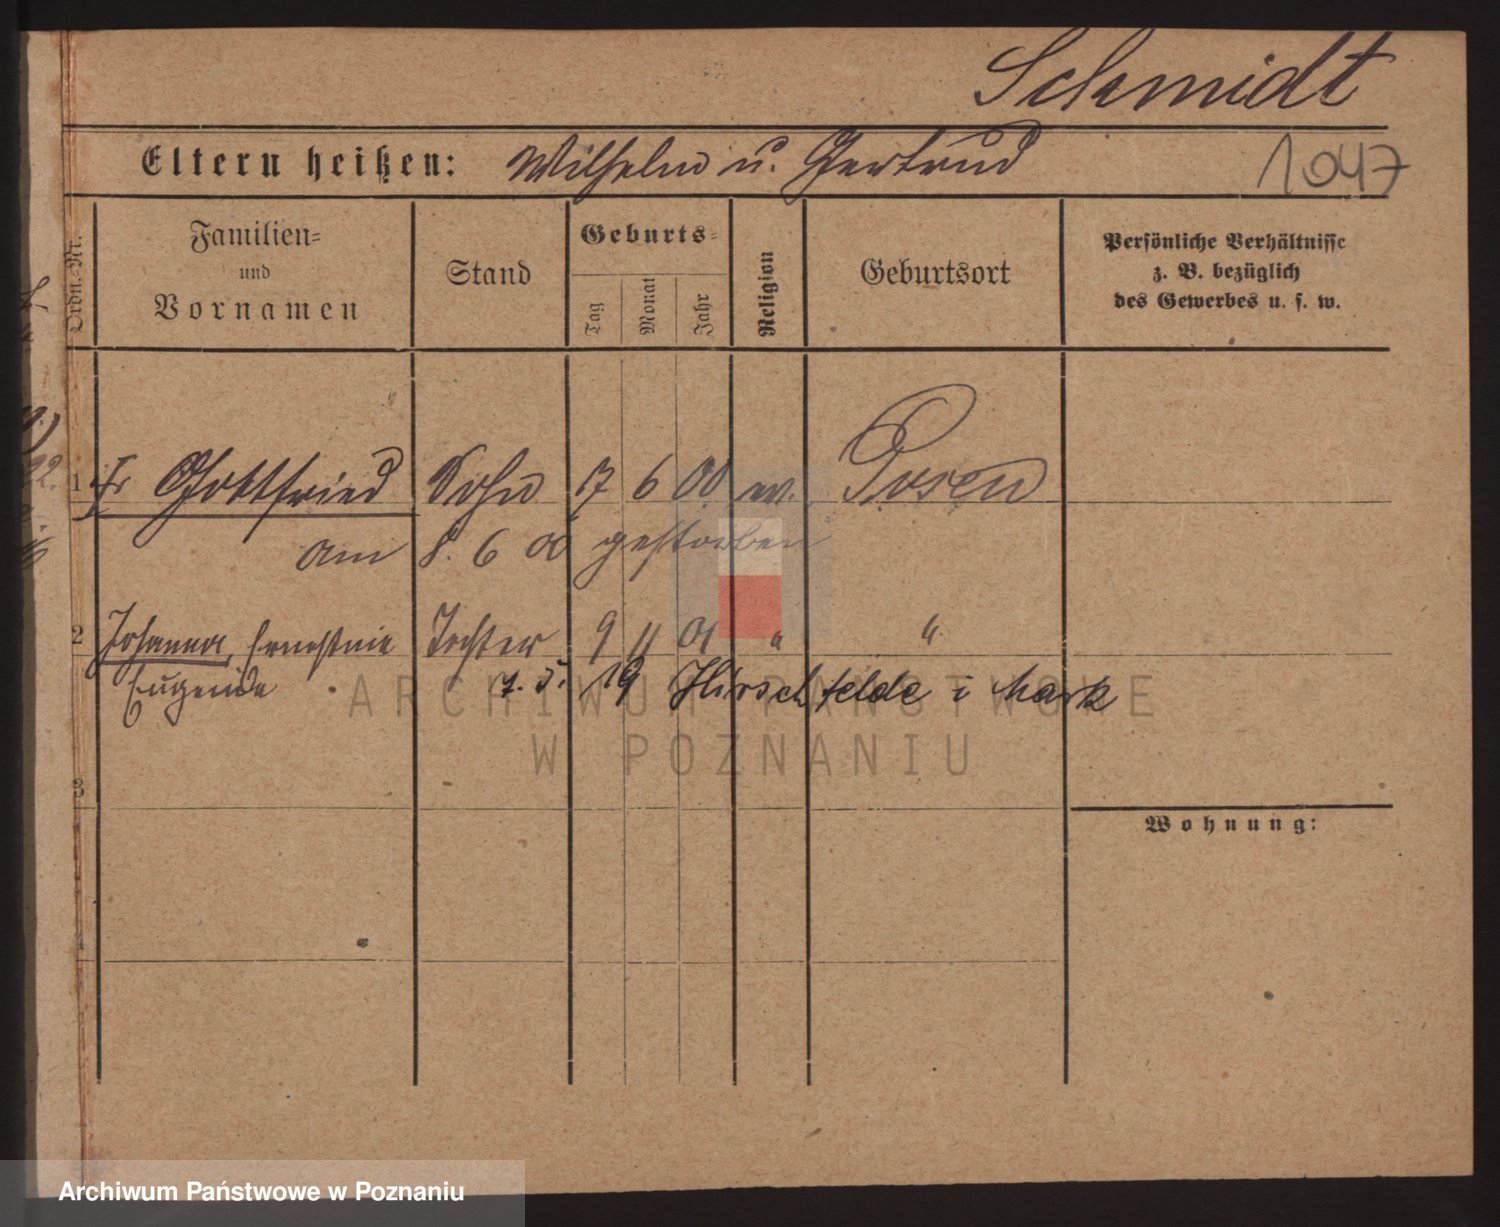 Schmidt
Eltern heißen: Wilhelm u. Gertrud 1047
Ordn.-Nr.
Familien-
und
Vornamen
Stand
Geburts-
Tag
Monat
Jahr
Religion
Geburtsort
Persönliche Verhältnisse
z. B. bezüglich
des Gewerbes u. s. w.
1 Gottfried Sohn 17 6 00 ev. Posen
am 8. 6 00 gestorben
2 Johanna, Ernestine Tochter 9 11 01 " "
Eugenie 7. 5. 19 Hirschfelde i Mark
3
Wohnung:
4
ARCHIWUM PAŃSTWOWE
W POZNANIU
Archiwum Państwowe w Poznaniu